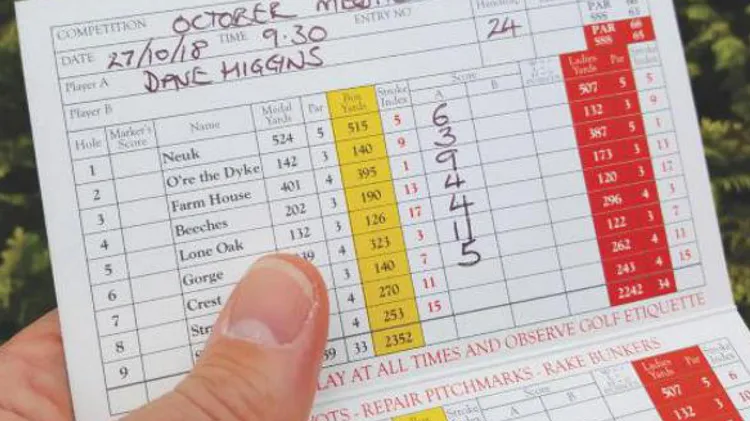 COMPETITION OCTOBER
DATE 27/10/18 TIME 9.30 ENTRY NO Handicap 24
Player A DAVE HIGGINS
Player B
PAR 66
SSS 63
PAR 66
SSS 65
Hole Marker's Score Name Medal Yards Par Bon Yards Stroke Index Score A B Ladies Yards Par Stroke Index
1 Neuk 524 5 515 5 6 507 5 5
2 O're the Dyke 142 3 140 9 3 132 3 9
3 Farm House 401 4 395 1 9 387 5 1
4 Beeches 202 3 190 13 4 173 3 13
5 Lone Oak 132 3 126 17 4 120 3 17
6 Gorge 4 323 3 11 296 4 3
7 Crest 3 140 7 5 122 3 7
8 4 270 11 262 4 11
9 4 253 15 243 4 15
33 2352 2242 34
PLAY AT ALL TIMES AND OBSERVE GOLF ETIQUETTE
REPAIR PITCHMARKS - RAKE BUNKERS
Stroke Index Score A B Ladies Yards Par Stroke Index
507 5 6
132 3 10